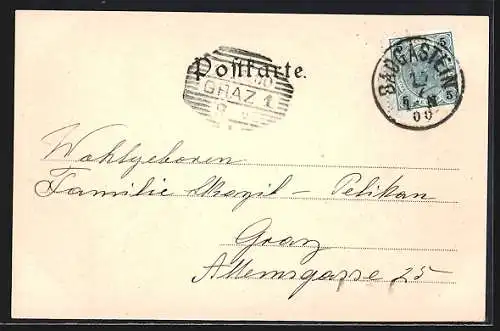 Postkarte.
GRAZ 1
BADGASTEIN
5 5
00
Wohlgeboren
Familie Skazil - Pelikan
Graz
Attemsgasse 25